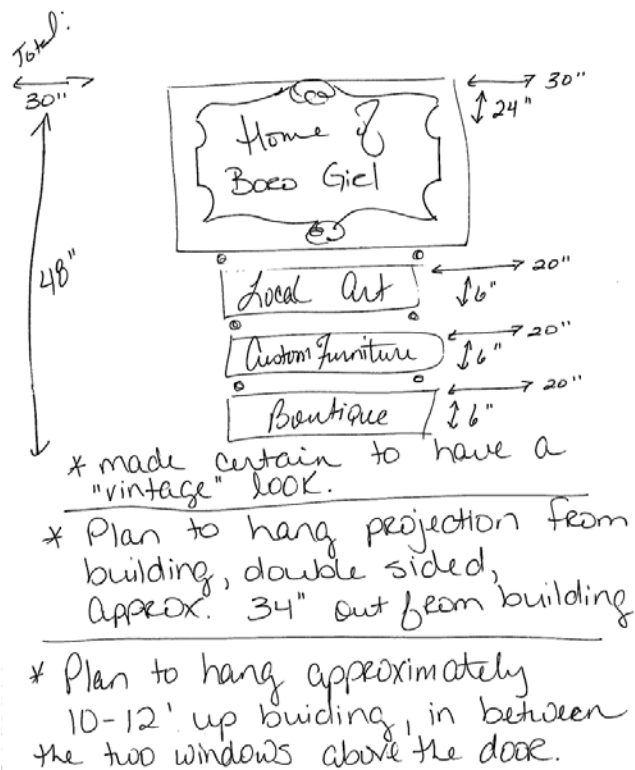 Total:
30"
48"
30"
24"
Home of
Boro Girl
Local Art
20"
6"
Custom Furniture
20"
6"
Boutique
20"
6"
* made certain to have a
"vintage" look.
* Plan to hang projection from
building, double sided,
approx. 34" out from building
* Plan to hang approximately
10-12' up buiding, in between
the two windows above the door.